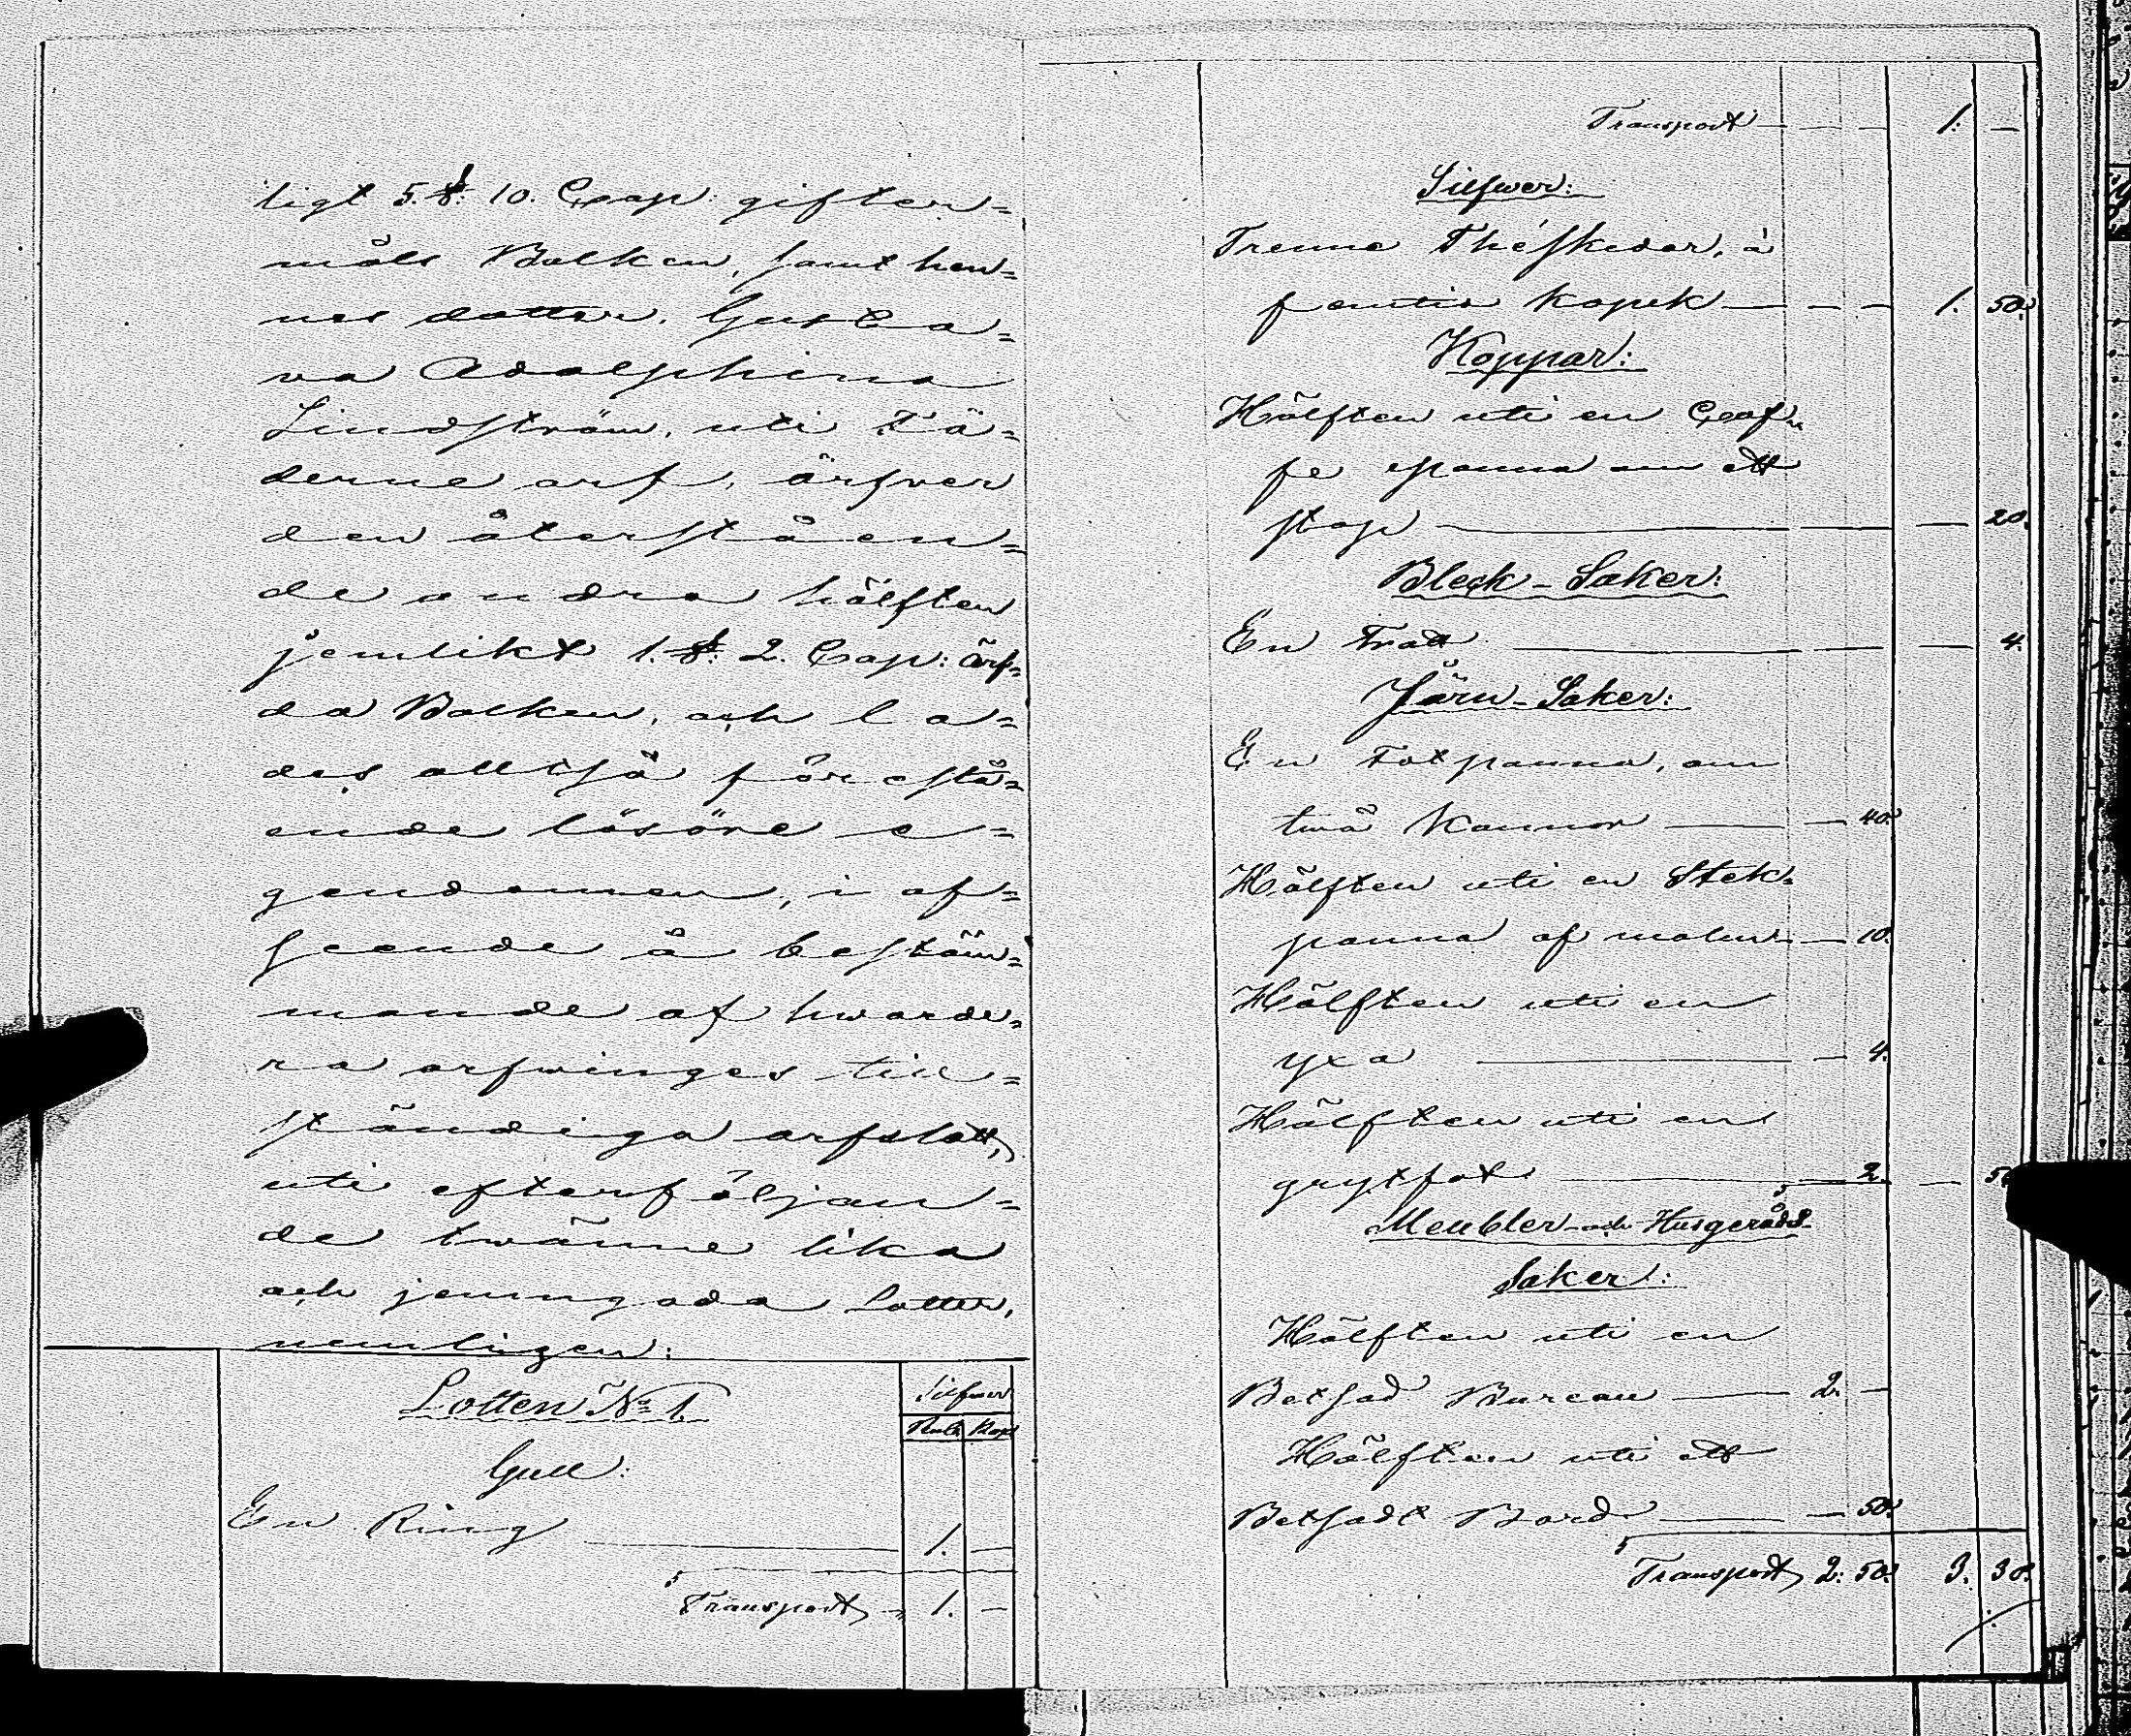 ligt 5. §. 10. Cap: gifter=
måls Balken, samt hen=
nes dotter, Gusta=
va Adolphina
Lindström, uti Fä=
derne arf, ärfver
den återståen=
de andra hälften
jemlikt 1. §. 2. Cap: Ärf=
da Balken, och la=
des alltså förestå=
ende lösöre e=
gendommen, i af=
seende å bestäm=
mande af hwarde=
ra arfwinges till=
ständiga arfslott,
uti efterföljan=
de twänne lika
och jemngoda Lotter,
nemligen:
Lotten No 1. Silfwer
Rub: Kop:
Gull:
En Ring — 1. —
Transport — 1. —
Transport — — — 1. —
Silfwer:
Trenne Théskedar, à
femtio kopek — — — 1. 50.
Koppar:
Hälften uti en Caf=
fe panna om ett
stop — — — 20.
Bleck-Saker:
En Tratt — — — 4.
Järn-Saker:
En Fotpanna, om
twå Kannor — — 40.
Hälften uti en Stek=
panna af malm — — 10.
Hälften uti en
yxa — — 4.
Hälften uti en
grytfot — 2. — 56
Meubler och Husgeråds
Saker:
Hälften uti en
Betsad Bureau — 2. —
Hälften uti ett
Betsadt Bord — — 50.
Transport 2. 50. 3. 30.